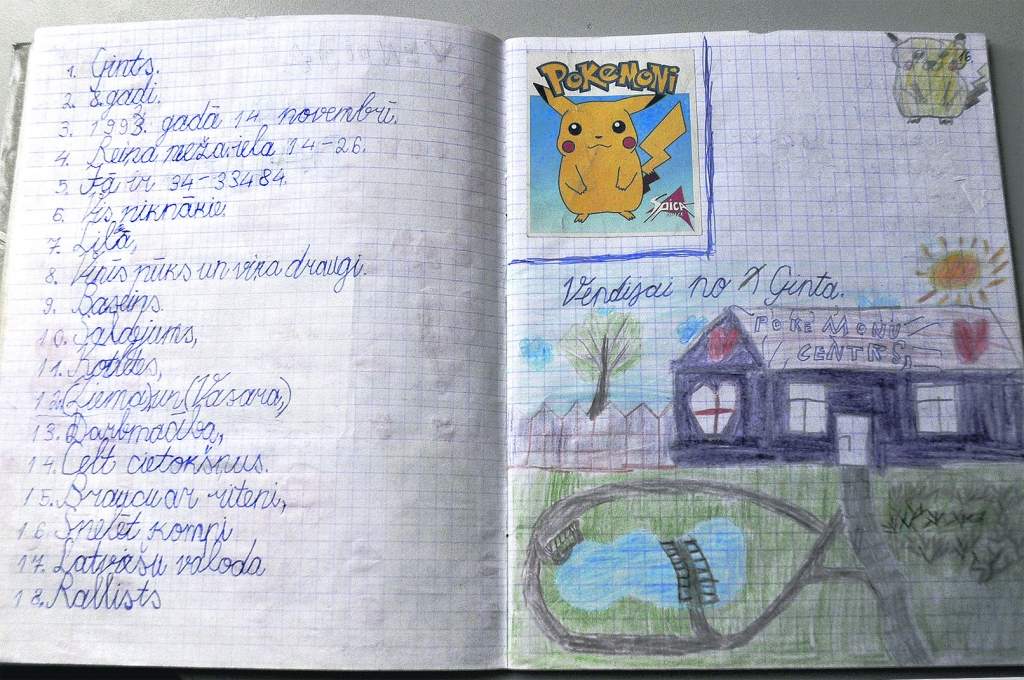 1. Gints.
2. 8.gadi.
3. 1993. gadā 14. novembrī.
4. meža iela 14-26.
5. ir 34-33484.
6. Vis niknākie.
7. Lillā,
8. un viņa draugi.
9. Baseins.
10. Saldējums,
11. Kotletes,
12. (Ziema) un (Vasara,)
13. Darbmācība,
14. Celt cietokšņus.
15. Braucu ar riteni,
16. Spēlēt kompi
17. Latviešu valoda
18. Rallists
16.
POKEMONI
SPICA
Vendijai no Ginta.
POKEMONU
CENTRS,